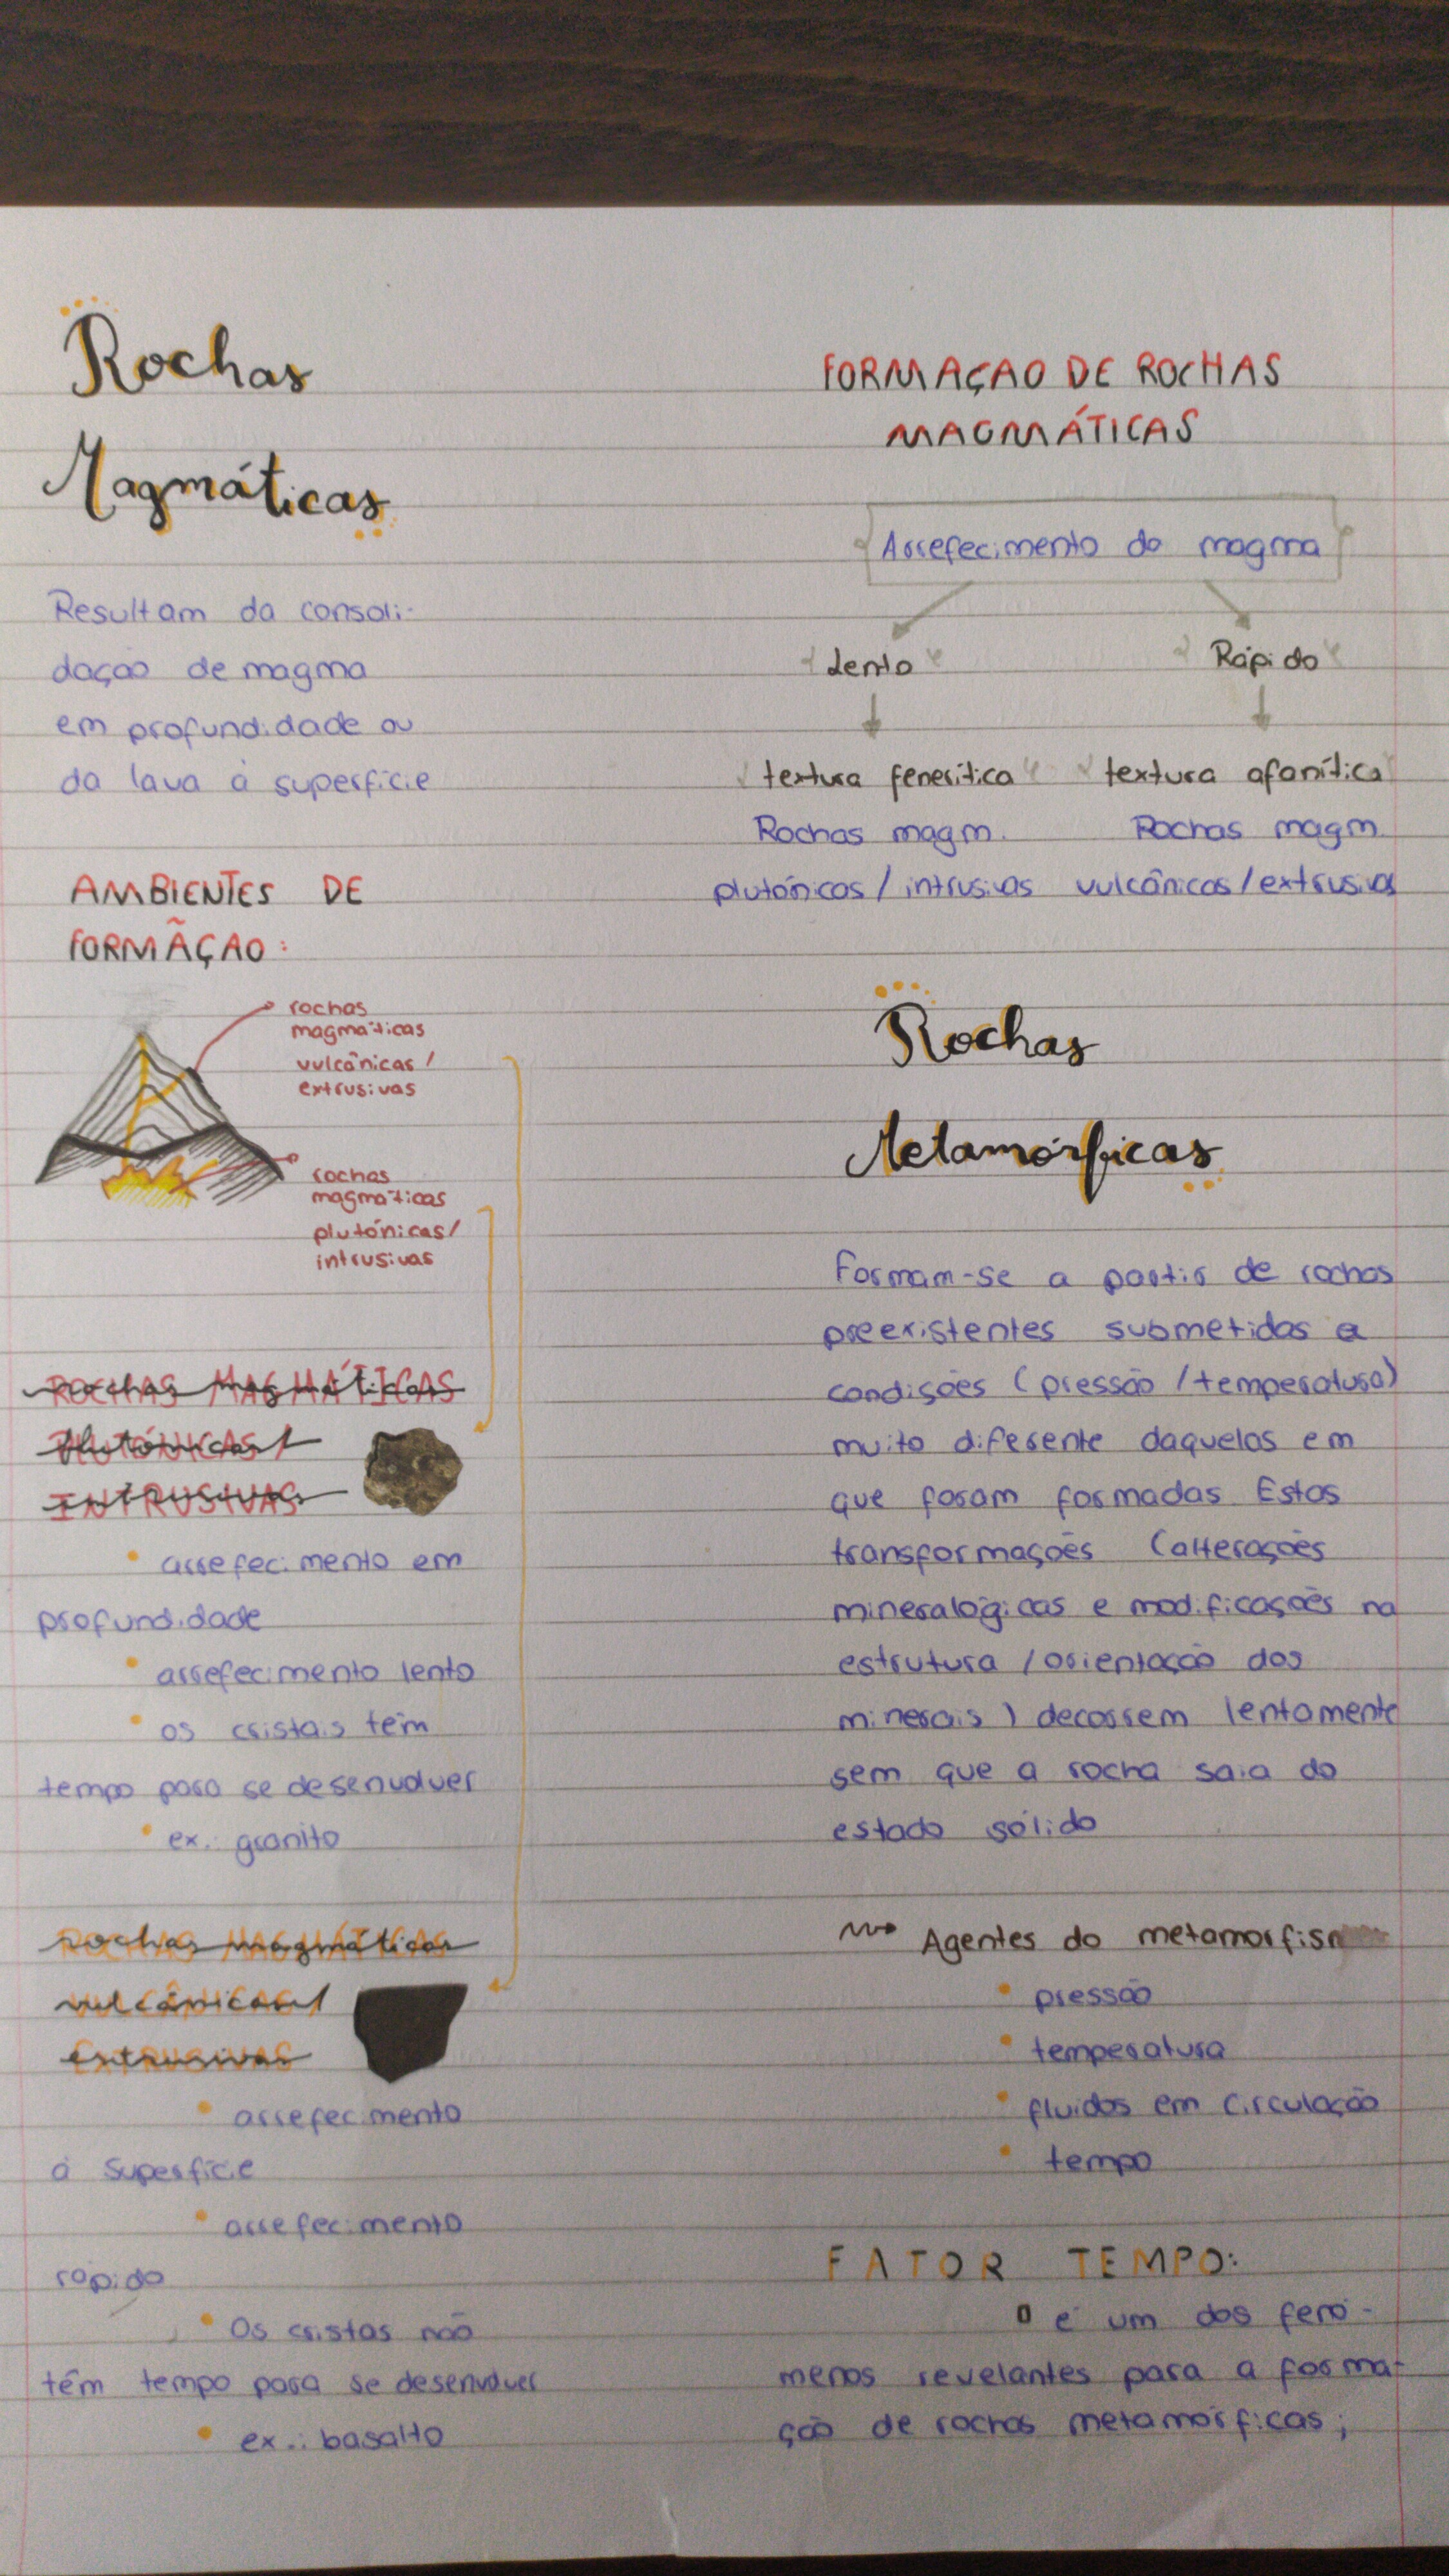 Rochas
Magmáticas
Resultam da consoli-
dação de magma
em profundidade ou
da lava à superfície
AMBIENTES DE
FORMÃÇAO:
rochas
magmáticas
vulcânicas/
extrusivas
rochas
magmáticas
plutónicas/
intrusivas
ROCHAS MAGMÁTICAS
Plutónicas/
INTRUSIVAS
• arrefecimento em
profundidade
• arrefecimento lento
• os cristais têm
tempo para se desenvolver
• ex.: granito
Rochas magmáticas
vulcânicas/
extrusivas
• arrefecimento
à superfície
• arrefecimento
rápido
• Os cristas não
têm tempo para se desenvolver
• ex.: basalto
FORMAÇAO DE ROCHAS
MAGMÁTICAS
Arrefecimento do magma
Lento
Rápido
textura fenerítica
textura afanítica
Rochas magm.
Rochas magm.
plutónicas/intrusivas
vulcânicas/extrusivas
Rochas
Metamórficas
Formam-se a partir de rochas
preexistentes submetidas a
condições (pressão/temperatura)
muito diferente daquelas em
que foram formadas Estas
transformações (alterações
mineralógicas e modificações na
estrutura/orientação dos
minerais) decorrem lentamente
sem que a rocha saia do
estado sólido
Agentes do metamorfis
• pressão
• temperatura
• fluidos em circulação
• tempo
FATOR TEMPO:
é um dos fenó-
menos revelantes para a forma-
ção de rochas metamórficas;